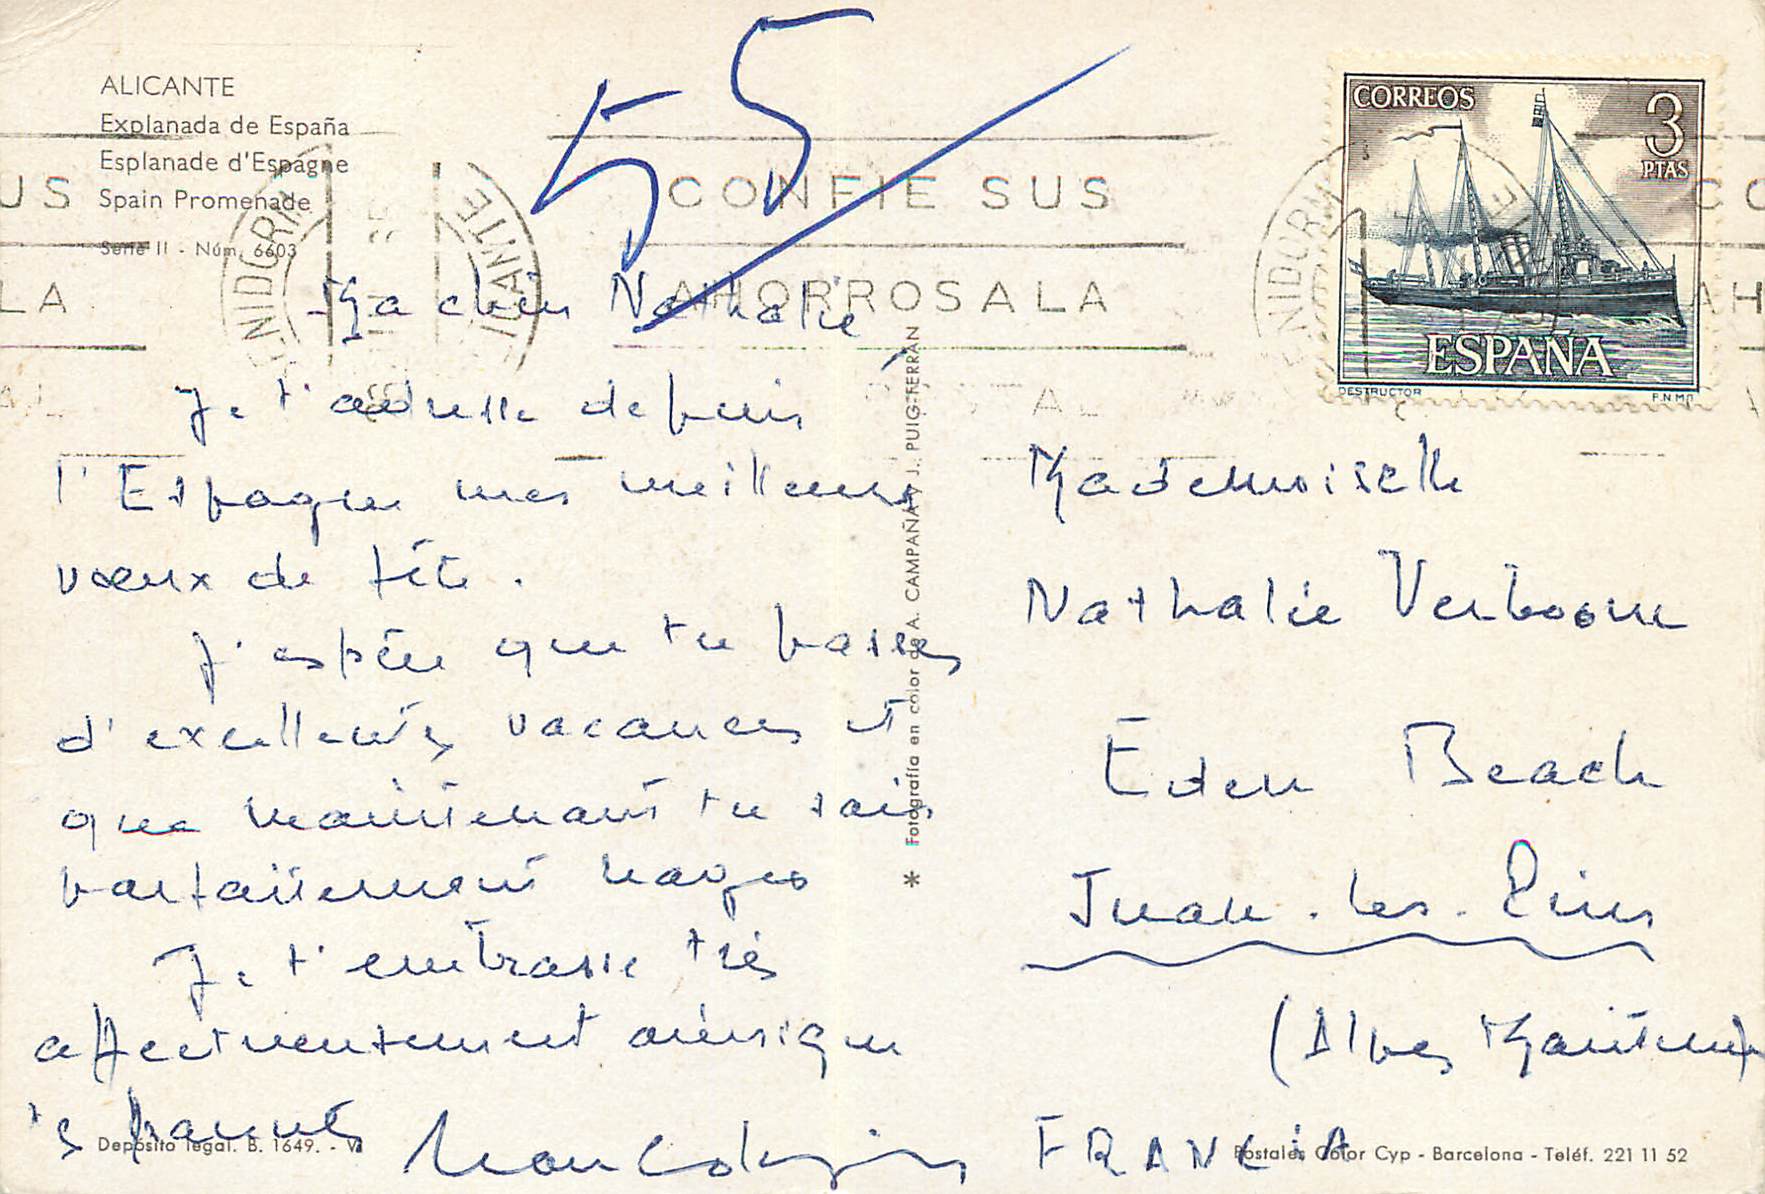 ALICANTE
Explanada de España
Esplanade d'Espagne
Spain Promenade
Serie II - Núm. 6603
55
CONFIE SUS
AHORROS A LA
US
LA
BENIDORM
ALICANTE
CORREOS
3
PTAS
ESPAÑA
DESTRUCTOR
F.N.M.T.
Ma chère Nathalie
Je t'adresse depuis
l'Espagne mes meilleurs
vœux de fête.
J'espère que tu passes
d'excellentes vacances et
que maintenant tu sais
parfaitement nager
Je t'embrasse très
affectueusement ainsi que
tes parents
Mademoiselle
Nathalie Verboom
Eden Beach
Juan-les-Pins
(Alpes Maritimes)
FRANCIA
* Fotografía en color de A. CAMPAÑÁ y J. PUIG-FERRÁN
Depósito legal. B. 1649. - V
Postales Color Cyp - Barcelona - Teléf. 221 11 52